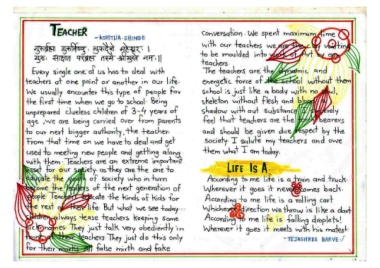 TEACHER
-KSHITIJA SHINDE
गुरुर्ब्रह्मा गुरुर्विष्णु, गुरुर्देवो महेश्वरः ।
गुरुः साक्षात परब्रह्म तस्मै श्रीगुरवे नमः ॥
Every single one of us has to deal with
teachers at one point or another in our life.
We usually encounter this type of people for
the first time when we go to school. Being
unprepared clueless children of 3-4 years of
age, we are being carried over from parents
to our next bigger authority, the teacher.
From that time on we have to deal and get
used to meeting new people and getting along
with them. Teachers are an extreme important
asset for our society as they are the one to
educate the youth of society who in turn
become the leaders of the next generation of
people. Teachers educate the kinds of kids for
the rest of their life. But what we see today
children always tease teachers keeping some
nicknames. They just talk very obediently in
teachers. They just do this only
for their marks. All false mirth and fake
conversation. We spent maximum time
with our teachers we are
to be moulded into
teachers.
The teachers are the dynamic and
energetic force of the school without them
school is just like a body with no soul,
skeleton without flesh and blood,
shadow without substance.
feel that teachers are the bearers
and should be given due respect by the
society. I salute my teachers and owe
them what I am today.
LIFE IS A
According to me life is a train and truck
Wherever it goes it never comes back.
According to me life is a rolling cart
Whichever direction we throw is like a dart
According to me life is falling droplets!
Wherever it goes it meets with his molest
- TEJASHREE BARVE